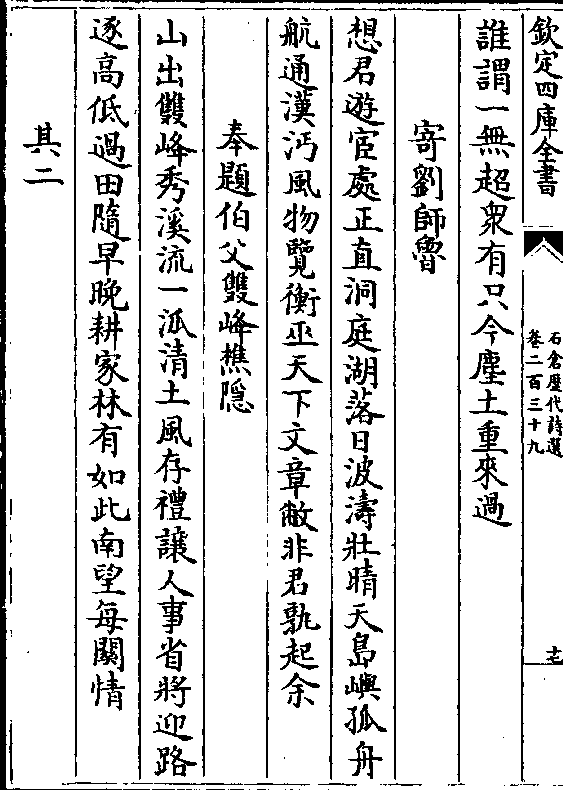 欽定四庫全書
石倉歷代詩選
卷二百三十九
十七
誰謂一無超衆有只今塵土重來過
寄劉師魯
想君遊宦處正直洞庭湖落日波濤壯晴天島嶼孤舟
航通漢沔風物覽衡巫天下文章敝非君孰起余
奉題伯父雙峰樵隱
山出雙峰秀溪流一派清土風存禮讓人事省將迎路
逐高低過田隨早晚耕家林有如此南望每關情
其二